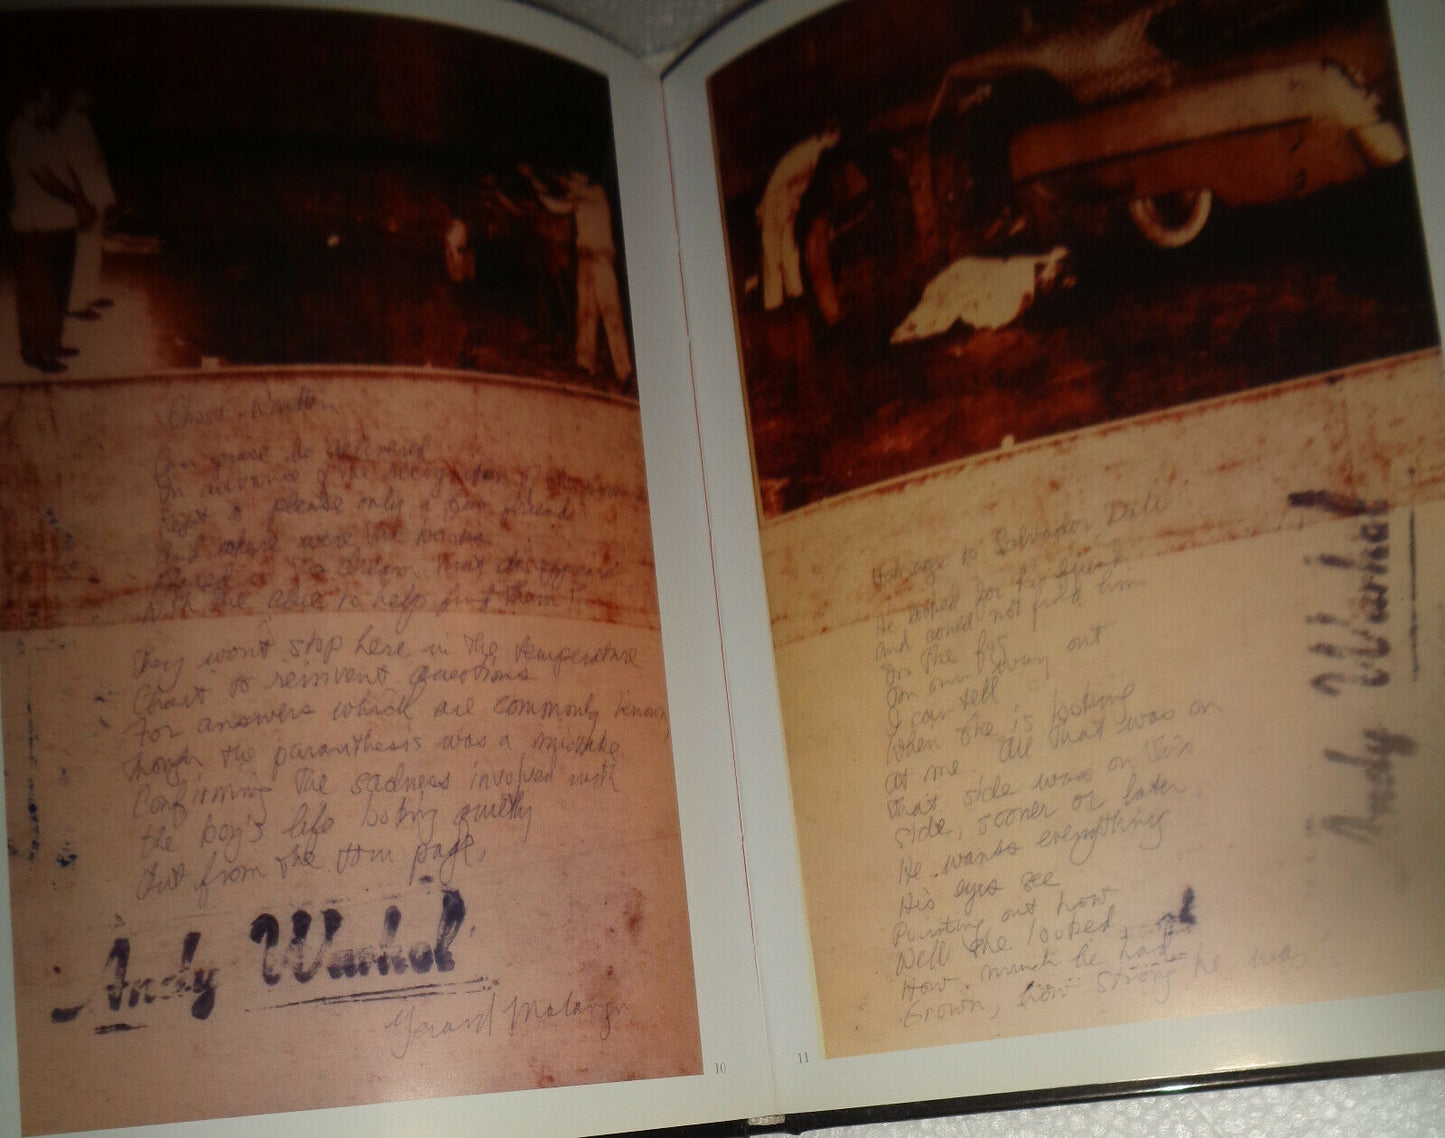 Can
In advance of the recognition of
Kept to please only a few friends
And where were the books
that disappears
With the clue to help find them?
They won't stop here in the temperature
Chart to reinvent questions
For answers which are commonly known,
Though the paranthesis was a mistake
Confirming the sadness involved with
the boy's life looking quietly
Out from the torn page.
Andy Warhol
Gerard Malanga
10
Homage to Salvador Dali
He asked for his friend
and could not find him
On our way out
I can tell
When she is looking
at me all that was on
that side was on this
side, sooner or later.
He wants everything
His eyes see
Pointing out how
Well she looked,
How much he had
Grown, how strong he was.
Andy Warhol
11